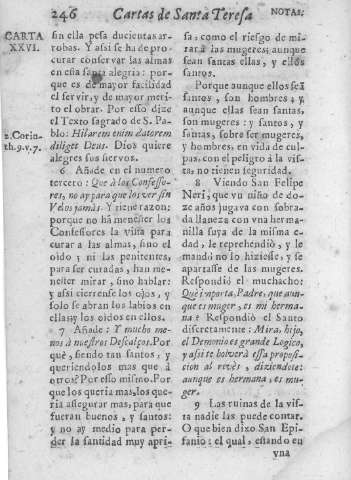 246 Cartas de Santa Teresa NOTAS.
CARTA
XXVI.
sin ella pesa ducientas ar-
robas. Y assi se ha de pro-
curar conservar las almas
en esta santa alegria: por-
que es de mayor facilidad
el servir, y de mayor meri-
to el obrar. Por esso dize
el Texto sagrado de S. Pa-
blo: Hilarem enim datorem
diliget Deus. Dios quiere
alegres sus siervos.
2. Corin-
th. 9. v. 7.
6 Añade en el numero
tercero: Que à los Confesso-
res, no ay para que los vèr sin
Velos jamàs. Y tiene razon:
porque no hà menester los
Confessores la vista para
curar a las almas, sino el
oido; ni las penitentes,
para ser curadas, han me-
nester mirar, sino hablar:
y assi cierrense los ojos, y
solo se abran los labios en
ella, y los oidos en ellos.
7 Añade: Y mucho me-
nos à nuestros Descalços. Por
què, siendo tan santos, y
queriendolos mas que à
otros? Por esso mismo. Por
que los queria mas, los que-
ria assegurar mas, para que
fueran buenos, y santos:
y no ay medio para per-
der la santidad muy apri-
sa, como el riesgo de mi-
rar à las mugeres; aunque
sean santas ellas, y ellos
santos.
Porque aunque ellos sea
santos, son hombres: y
aunque ellas sean santas,
son mugeres: y santos, y
santas, sobre ser mugeres,
y hombres, en vida de cul-
pas, con el peligro à la vis-
ta, no tienen seguridad.
8 Viendo San Felipe
Neri, que vn niño de do-
ze años jugava con sobra-
da llaneza con vna herma-
nilla suya de la misma e-
dad, le reprehendiò, y le
mandò no lo hiziesse, y se
apartasse de las mugeres.
Respondiò el muchacho:
Què importa, Padre, que aun-
que es muger, es mi herma-
na? Respondiò el Santo
discretamente: Mira, hijo,
el Demonio es grande Logico,
y assi te bolverà essa proposi-
cion al revès, diziendote:
aunque es hermana, es mu-
ger.
9 Las ruinas de la vis-
ta nadie las puede contar.
O que bien dixo San Epi-
fanio: el qual, estando en
vna